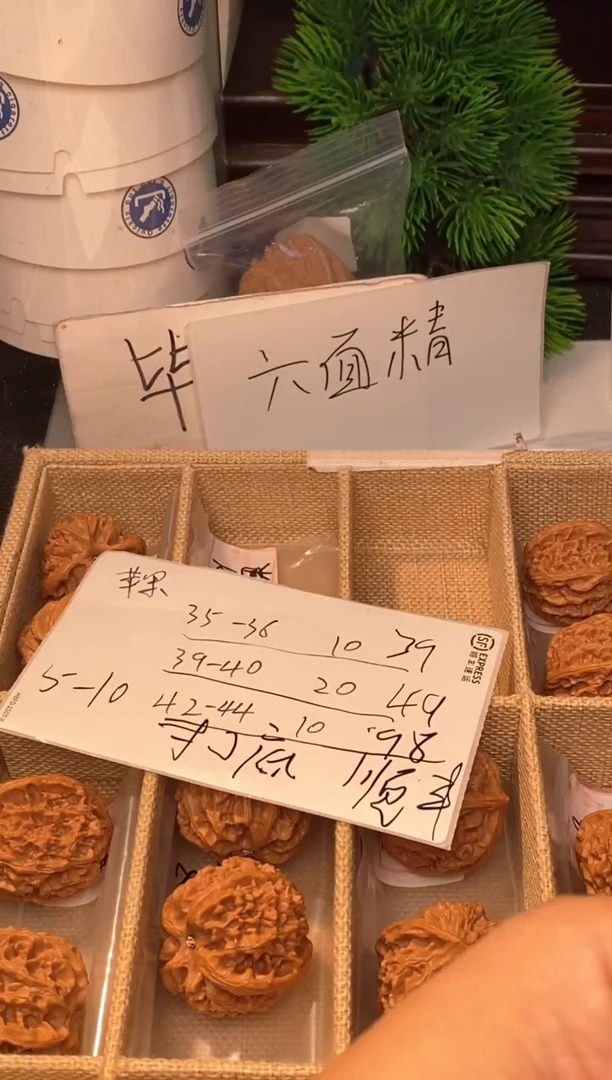 毕
六面精
苹果
35-36 10 39
39-40 20 49
5-10 42-44 10 98
SF EXPRESS
顺丰速运